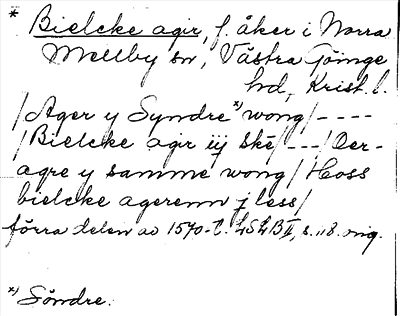 * Bielcke agir, f. åker i Norra
Mellby sn, Västra Göinge
hd, Krist. l.
/Ager y Syndre *) wong/----
/Bielcke agir iij ske/---/Oer-
agre y samme wong/Hoss
bielcke agerenn j less/
förra delen av 1570-t. LSLB II, s. 118. orig.
*) Söndre.